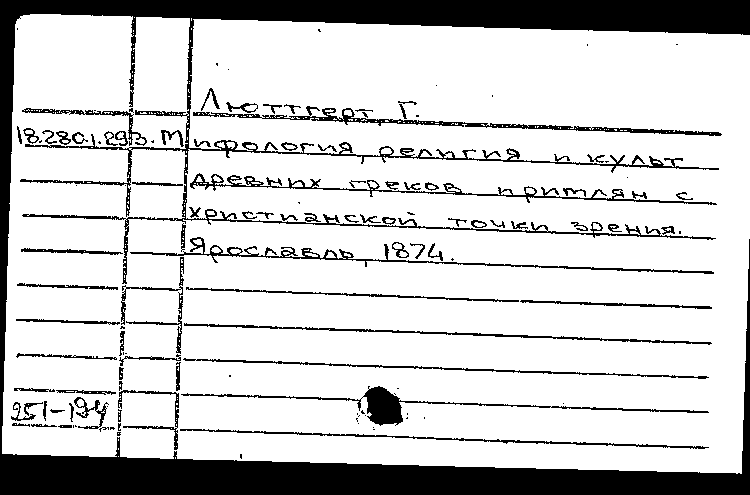 Люттгерт, Г.
18.280.1.293. Мифология, религия и культ
древних греков и римлян с
христианской точки зрения.
Ярославль, 1874.
251-194